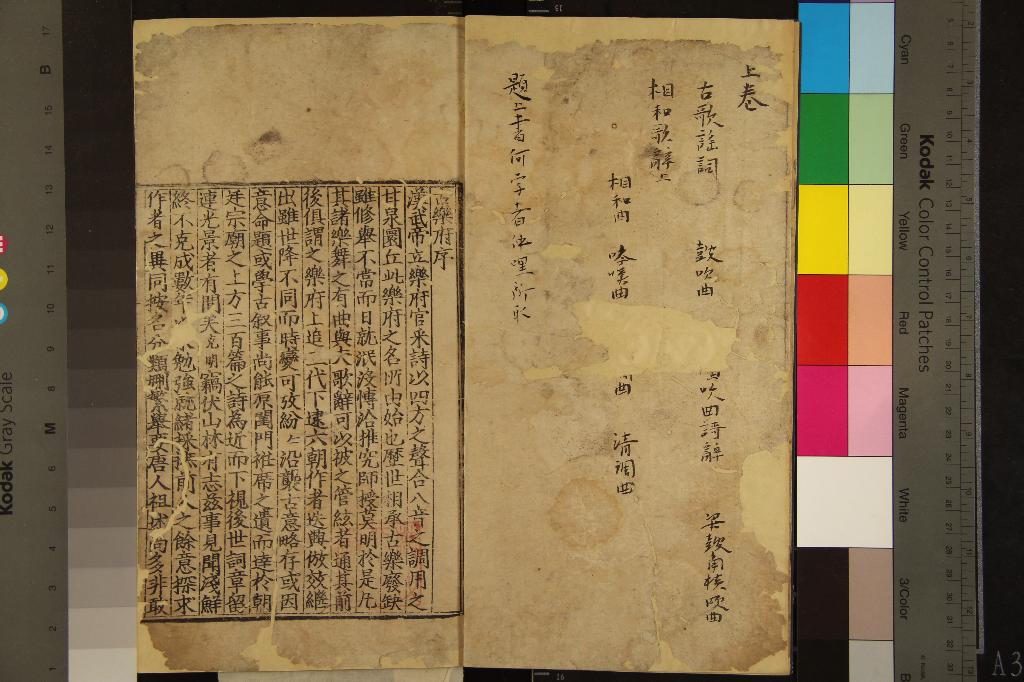 上卷
古歌謠詞 鼓吹曲 吹曲詩辭 梁鼓角横吹曲
相和歌辭上
相和曲 吟嘆曲 曲 清調曲
題上書何字者
古樂府序
漢武帝立樂府官采詩以四方之聲合八音之調用之
甘泉圜丘此樂府之名所由始也歷世相承古樂廢缺
雖修舉不當而日就泯沒愽洽推究師授莫明於是凡
其諸樂舞之有曲與夫歌辭可以被之管絃者通其前
後俱謂之樂府上追三代下逮六朝作者迭興倣效繼
出雖世降不同而時變可攷紛紛沿襲古意略存或因
意命題或學古叙事尚能原閨門袵席之遺而達於朝
廷宗廟之上方三百篇之詩為近而下視後世詞章留
連光景者有間矣克明竊伏山林有志茲事見聞淺鮮
終不克成數年勉強就緒採摭前人之餘意探求
作者之異同按名分類刪繁舉要唐人祖述尚多非敢
Kodak Color Control Patches
Cyan
Green
Yellow
Red
Magenta
White
3/Color
Kodak Gray Scale
A3